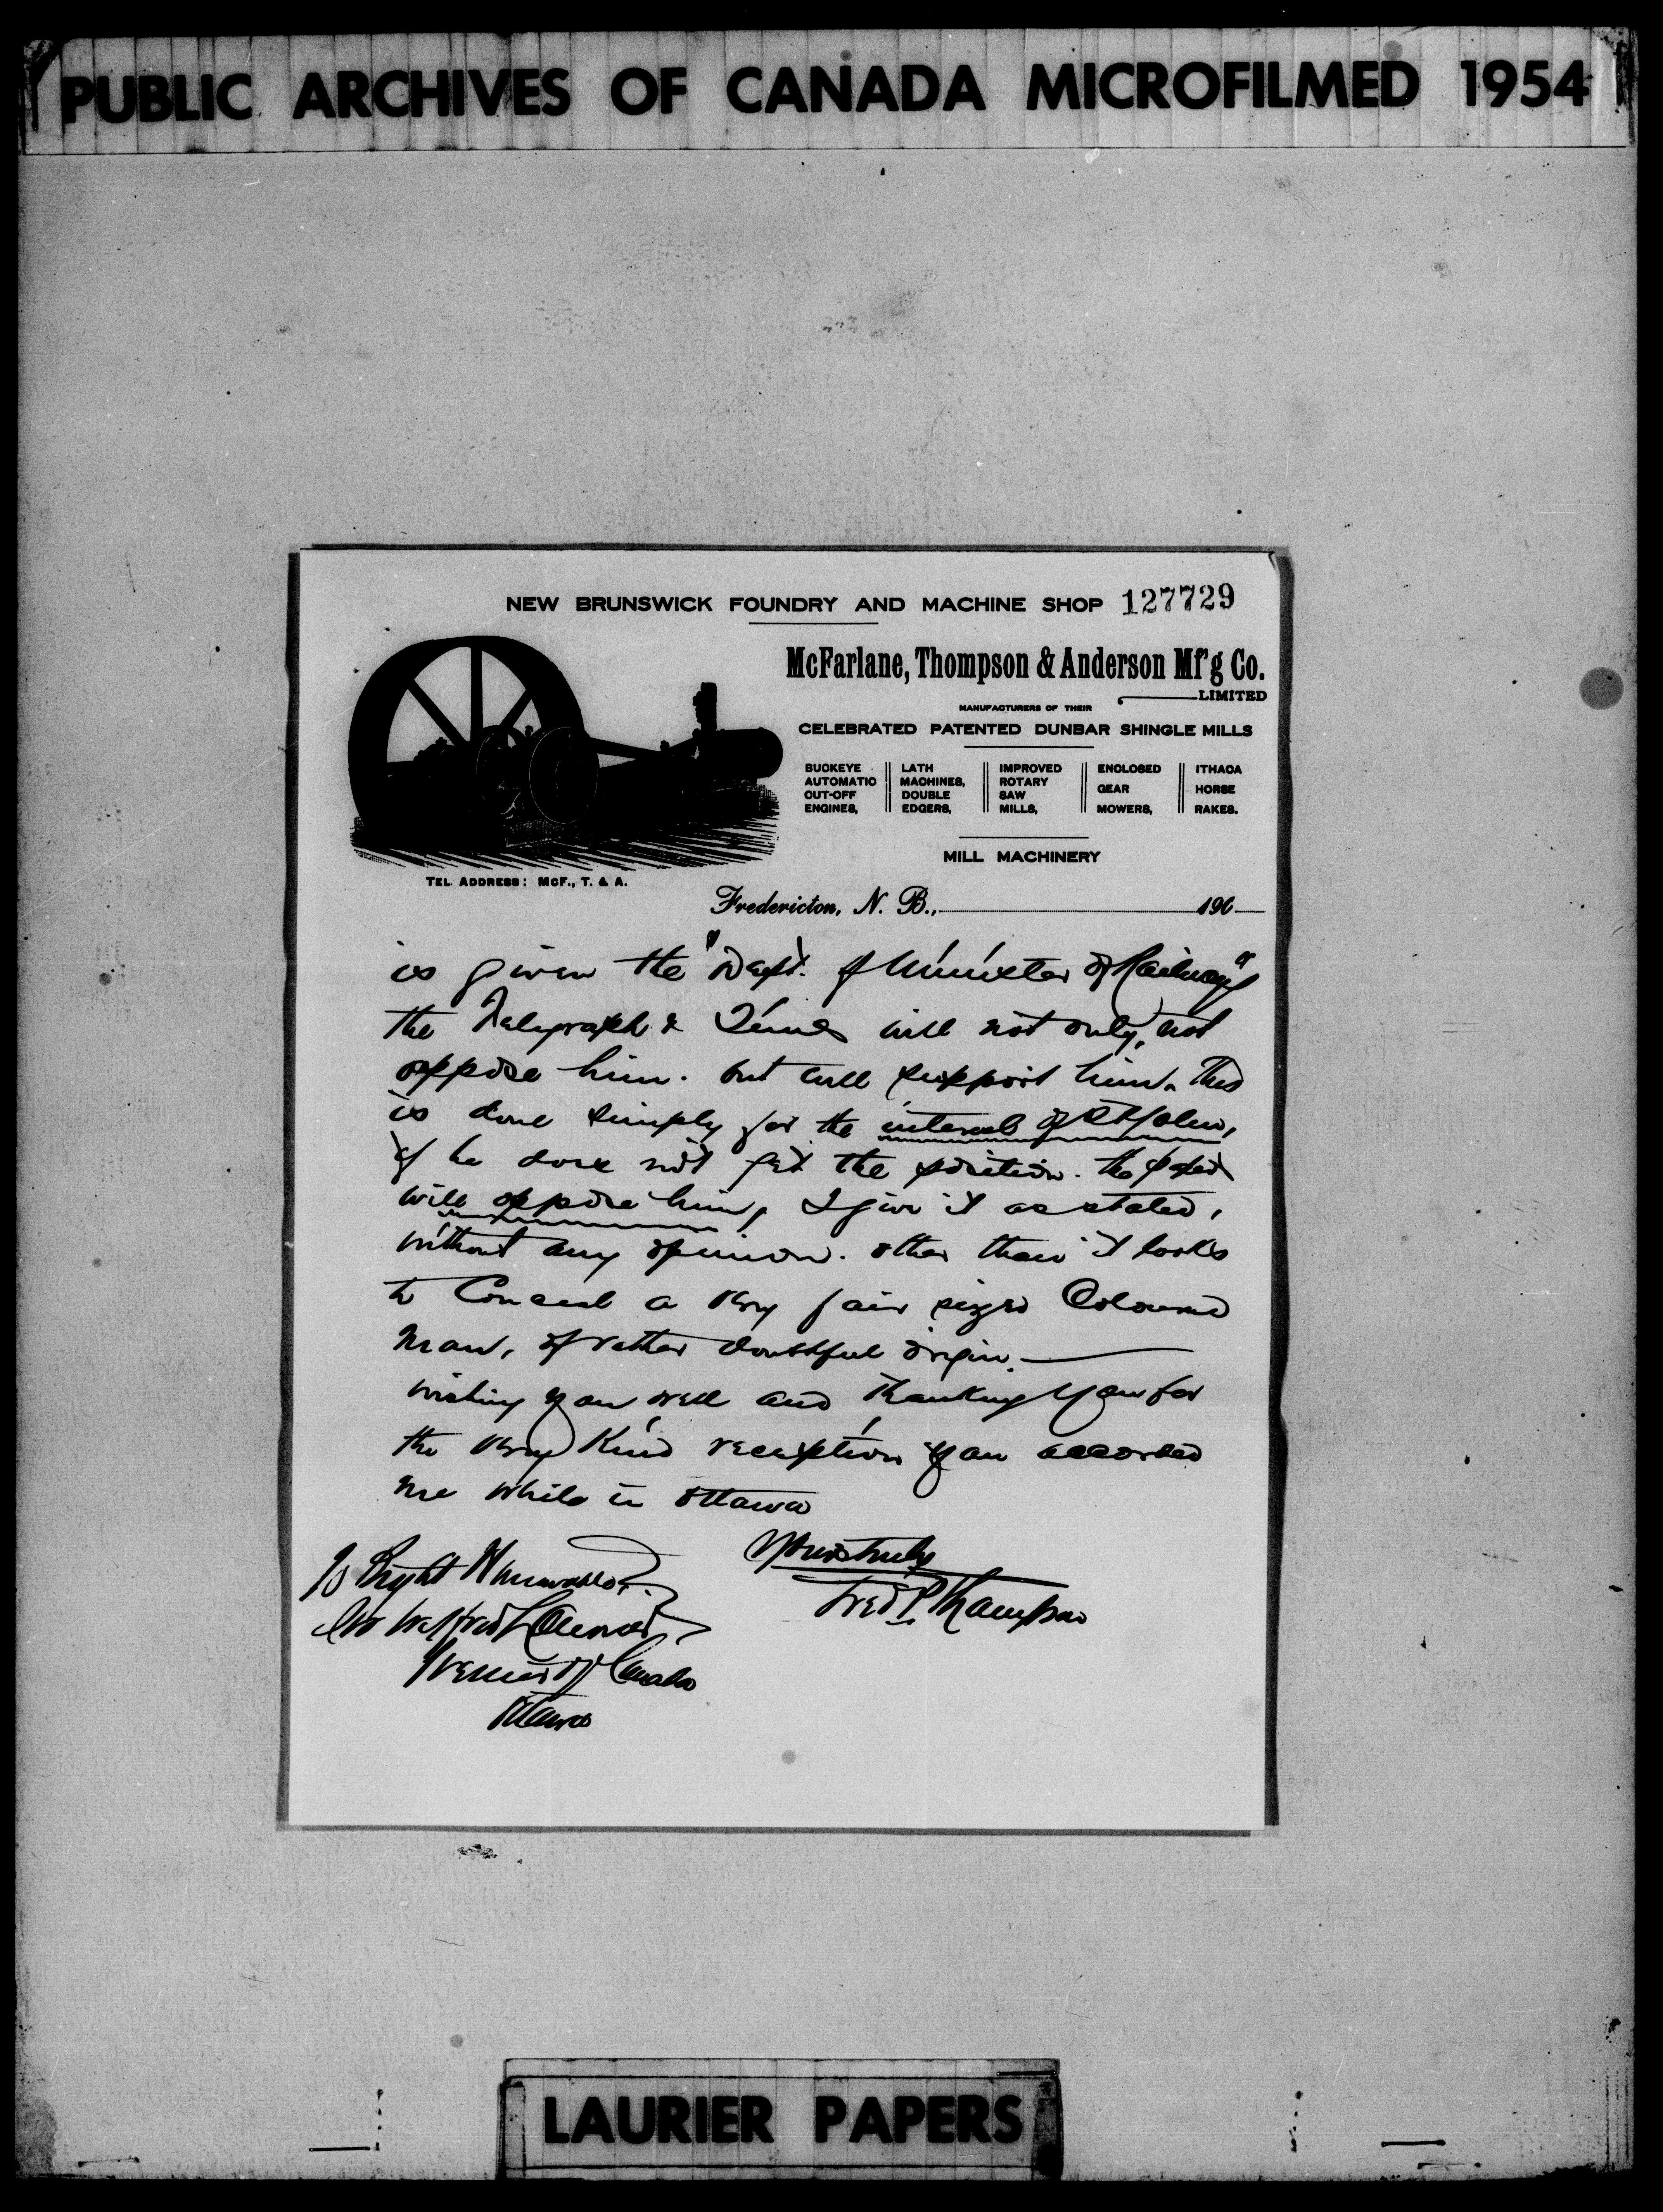 PUBLIC ARCHIVES OF CANADA MICROFILMED 1954
NEW BRUNSWICK FOUNDRY AND MACHINE SHOP 127729
McFarlane, Thompson & Anderson Mf'g Co.
LIMITED
MANUFACTURERS OF THEIR
CELEBRATED PATENTED DUNBAR SHINGLE MILLS
BUCKEYE AUTOMATIC CUT-OFF ENGINES,
LATH MACHINES, DOUBLE EDGERS,
IMPROVED ROTARY SAW MILLS,
ENCLOSED GEAR MOWERS,
ITHACA HORSE RAKES.
MILL MACHINERY
TEL ADDRESS: McF., T. & A.
Fredericton, N. B., 190
is given the "Dept. of Minister of Railways"
the Telegraph & Times will not only, not
oppose him. but will support him. This
is done simply for the interest of St John,
if he does not get the position. the paper
will oppose him, I give it as stated,
without any opinion. other than it looks
to Conceal a very fair sized Coloured
man, of rather doubtful origin.
wishing you well and thanking you for
the very Kind reception you accorded
me while in Ottawa
Yours truly
Fred P. Thompson
To Right Honorable
Sir Wilfred Laurier
Premier of Canada
Ottawa
LAURIER PAPERS